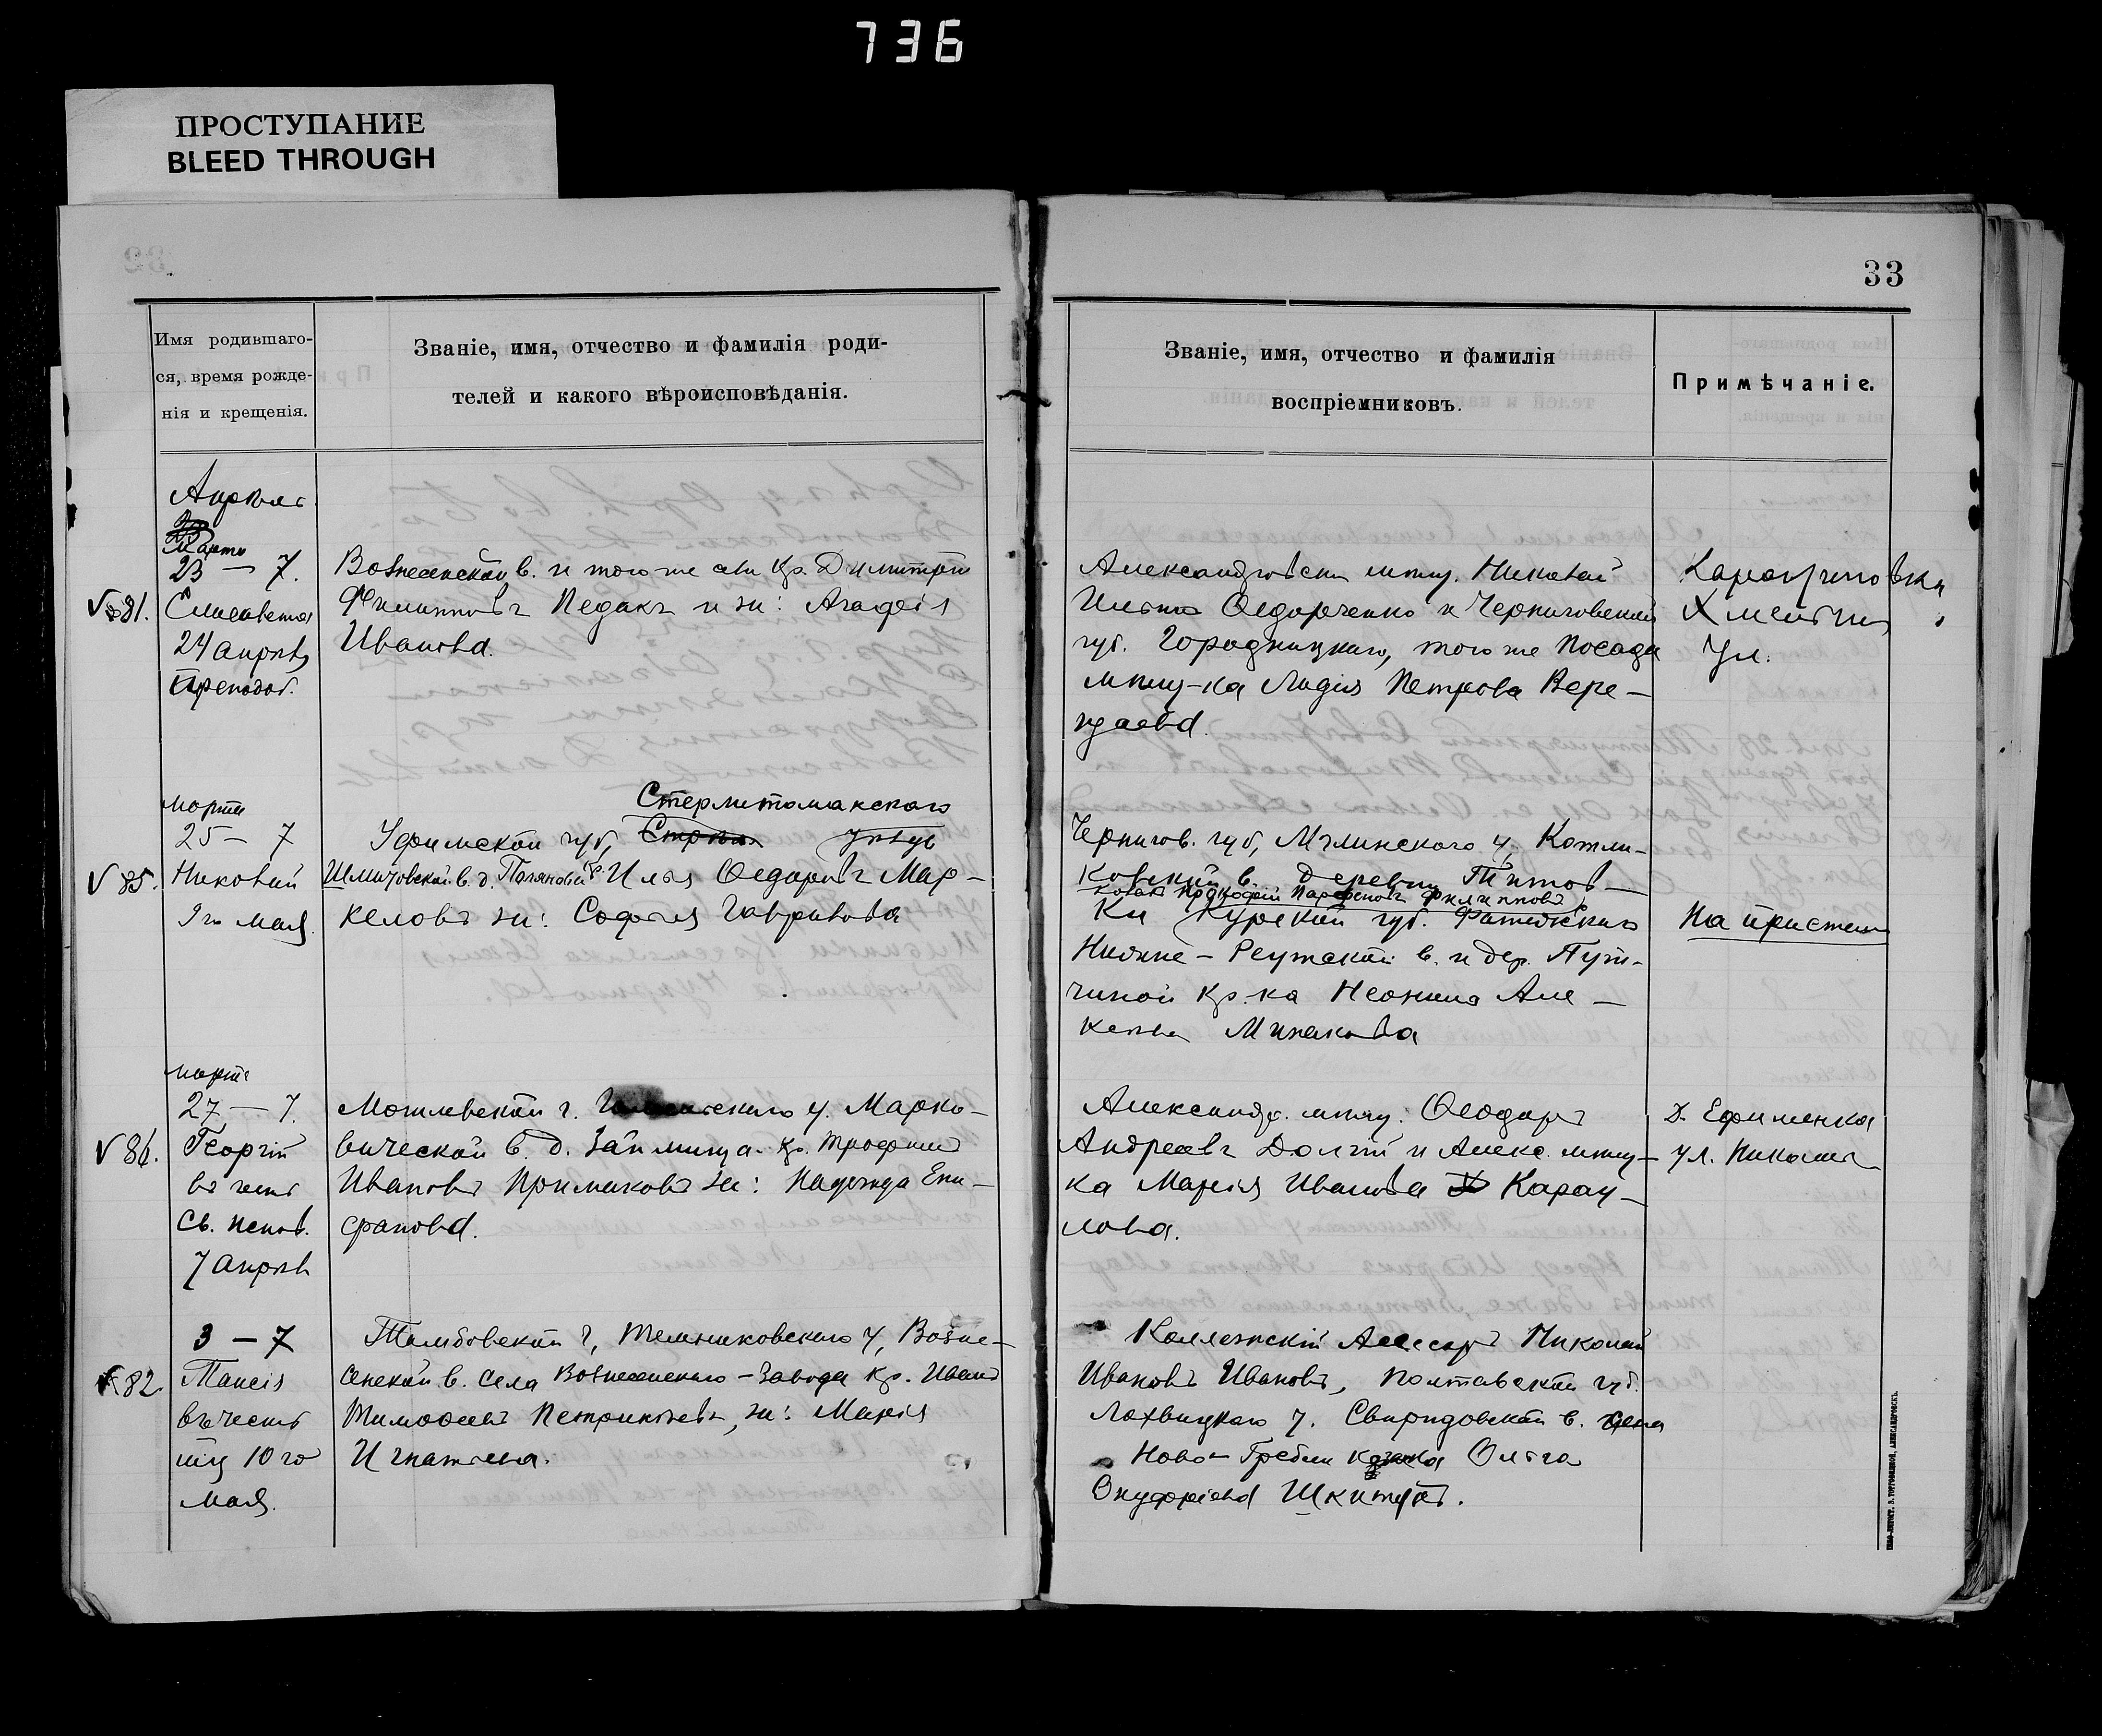 736
ПРОСТУПАНИЕ
BLEED THROUGH
33
Имя родившаго-
ся, время рожде-
нія и крещенія.
Званіе, имя, отчество и фамилія роди-
телей и какого вѣроисповѣданія.
Званіе, имя, отчество и фамилія
воспріемниковъ.
Примѣчаніе.
Апрѣль
Марта
23 — 7.
81.
Елисавета
24 апрѣ
Преподоб.
Вознесенской в. и того же села Кр. Димитрій
Филипповъ Педакъ и ж: Агафія
Иванова.
Александровскій мѣщ. Николай
Ильинъ Ѳедорченко и Черниговской
губ. Городницкаго, того же посада
мѣщ-ка Лидія Петрова Вере-
щаева.
Ул.
марта
25 — 7
85.
Николай
9го мая.
Стерлитамакскаго
Уфимской губ, уѣзда
в. д. Илья Ѳедоровъ Мар-
келовъ ж: Софія Гаврилова
Чернигов. губ, Мглинскаго у, Котля-
ковской в. деревни Титов-
козакъ Прокофій Парфеновъ Филипповъ
ки Курской губ. Фатежскаго
Нижне-Реутской в. и дер. Пут-
чиной Кр.ка Неонила Але-
Минакова
На пристани
марта
27 — 7.
86.
Георгій
въ честь
Св. Испов.
7 апрѣ
Могилевской г. у. Марко-
вической в. д. Займища. Кр. Трофимъ
Ивановъ Примаковъ ж: Надежда Епи-
фанова.
Александр. мѣщ. Ѳеодоръ
Андреевъ Долгій и Алекс. мѣщ-
ка Марія Иванова Карау-
лова.
Д. Ефименка
ул.
3 — 7
82.
Таисія
въ честь
10го
мая.
Тамбовской г, Темниковскаго у, Возне-
сенской в. села Вознесенскаго-Завода Кр. Иванъ
Тимофеевъ ж: Марія
Игнатьева.
Коллежскій Ассесоръ Николай
Ивановъ Ивановъ, Полтавской губ.
Лохвицкаго у. Свиридовской в. села
Ново-Гребли Ольга
Онуфріева
ТИПО-ЛИТОГР. Б. ТОРГОВИЦКОЙ, АЛЕКСАНДРОВСКЪ.